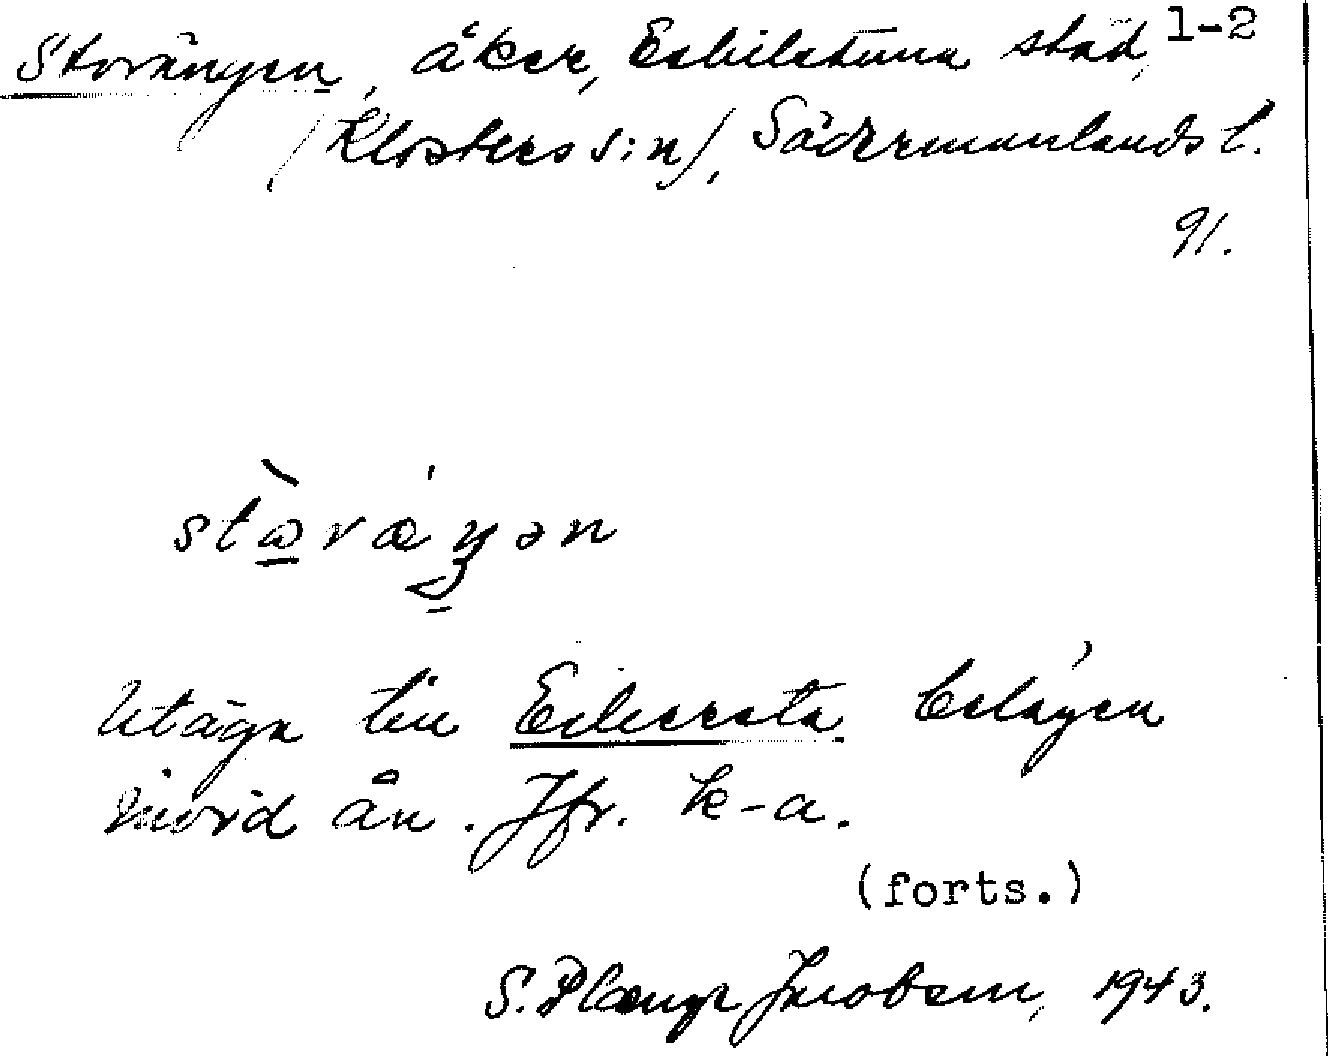 Storängen, åker, Eskilstuna stad, 1-2
/Klosters s:n/, Södermanlands l.
91.
Utäga till Eklersta belägen
invid ån. Jfr. k-a.
(forts.)
S. Plænge Jacobsen, 1943.